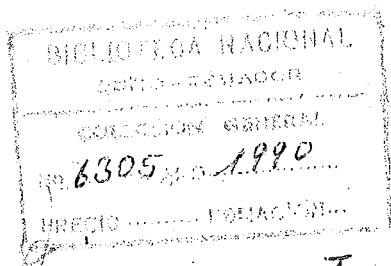 BIBLIOTECA NACIONAL
QUITO - ECUADOR
COLECCION GENERAL
No. 6305 1990
PRECIO .......... DONACION...